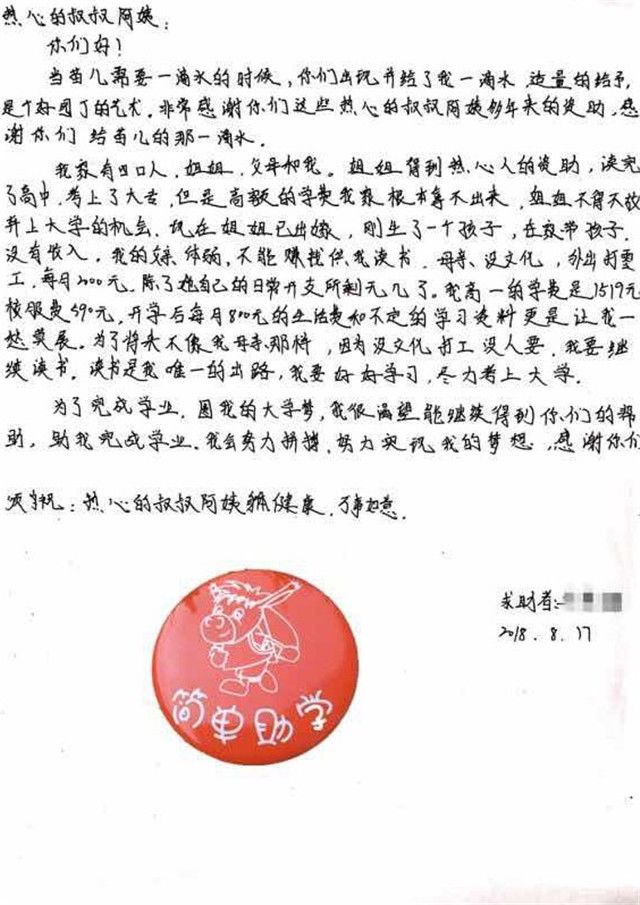 热心的叔叔阿姨：
你们好！
当苗儿需要一滴水的时候，你们出现并给了我一滴水，适量的给予，
是个好园丁的艺术。非常感谢你们这些热心的叔叔阿姨多年来的资助，感
谢你们给苗儿的那一滴水。
我家有四口人，姐姐，父母和我。姐姐得到热心人的资助，读完
了高中，考上了大学，但是高额的学费我家根本拿不出来，姐姐不得不放
弃上大学的机会。现在姐姐已出嫁，刚生了一个孩子，在家带孩子，
没有收入，我的父亲，体弱，不能赚钱供我读书，母亲，没文化，外出打零
工，每月2000元，除了她自己的日常开支所剩无几了。我高一的学费是1519元
校服费590元，开学后每月800元的生活费和不定的学习资料更是让我一
愁莫展。为了将来不像我母亲那样，因为没文化打工没人要，我要继
续读书。读书是我唯一的出路，我要好好学习，尽力考上大学。
为了完成学业，圆我的大学梦，我很渴望能继续得到你们的帮
助，助我完成学业。我会努力拼搏，努力实现我的梦想，感谢你们
颂祝：热心的叔叔阿姨健康，万事如意．
求助者：
2018．8．17
简单助学